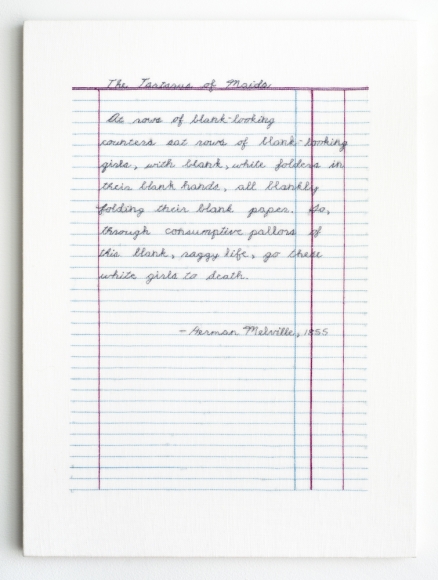 The Tartarus of Maids
At rows of blank-looking
counters sat rows of blank-looking
girls, with blank, white folders in
their blank hands, all blankly
folding their blank paper. So,
through consumptive pallors of
this blank, raggy life, go these
white girls to death.
- Herman Melville, 1855